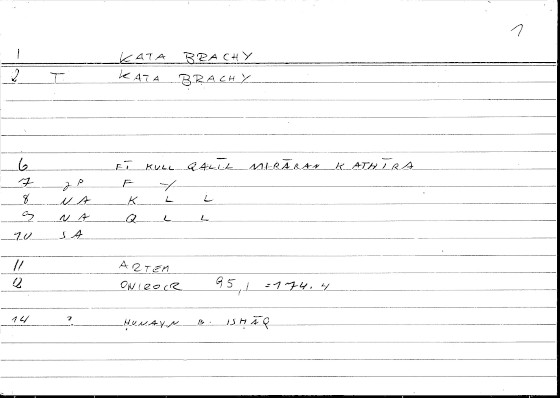 1
1 KATA BRACHY
2 T KATA BRACHY
6 FĪ KULL QALĪL MIRĀRAN KATHĪRA
7 JP F Y
8 NA K L L
9 NA Q L L
10 SA
11 ARTEM
12 ONIROCR 95,1 =174.4
14 ? ḤUNAYN B. ISḤĀQ